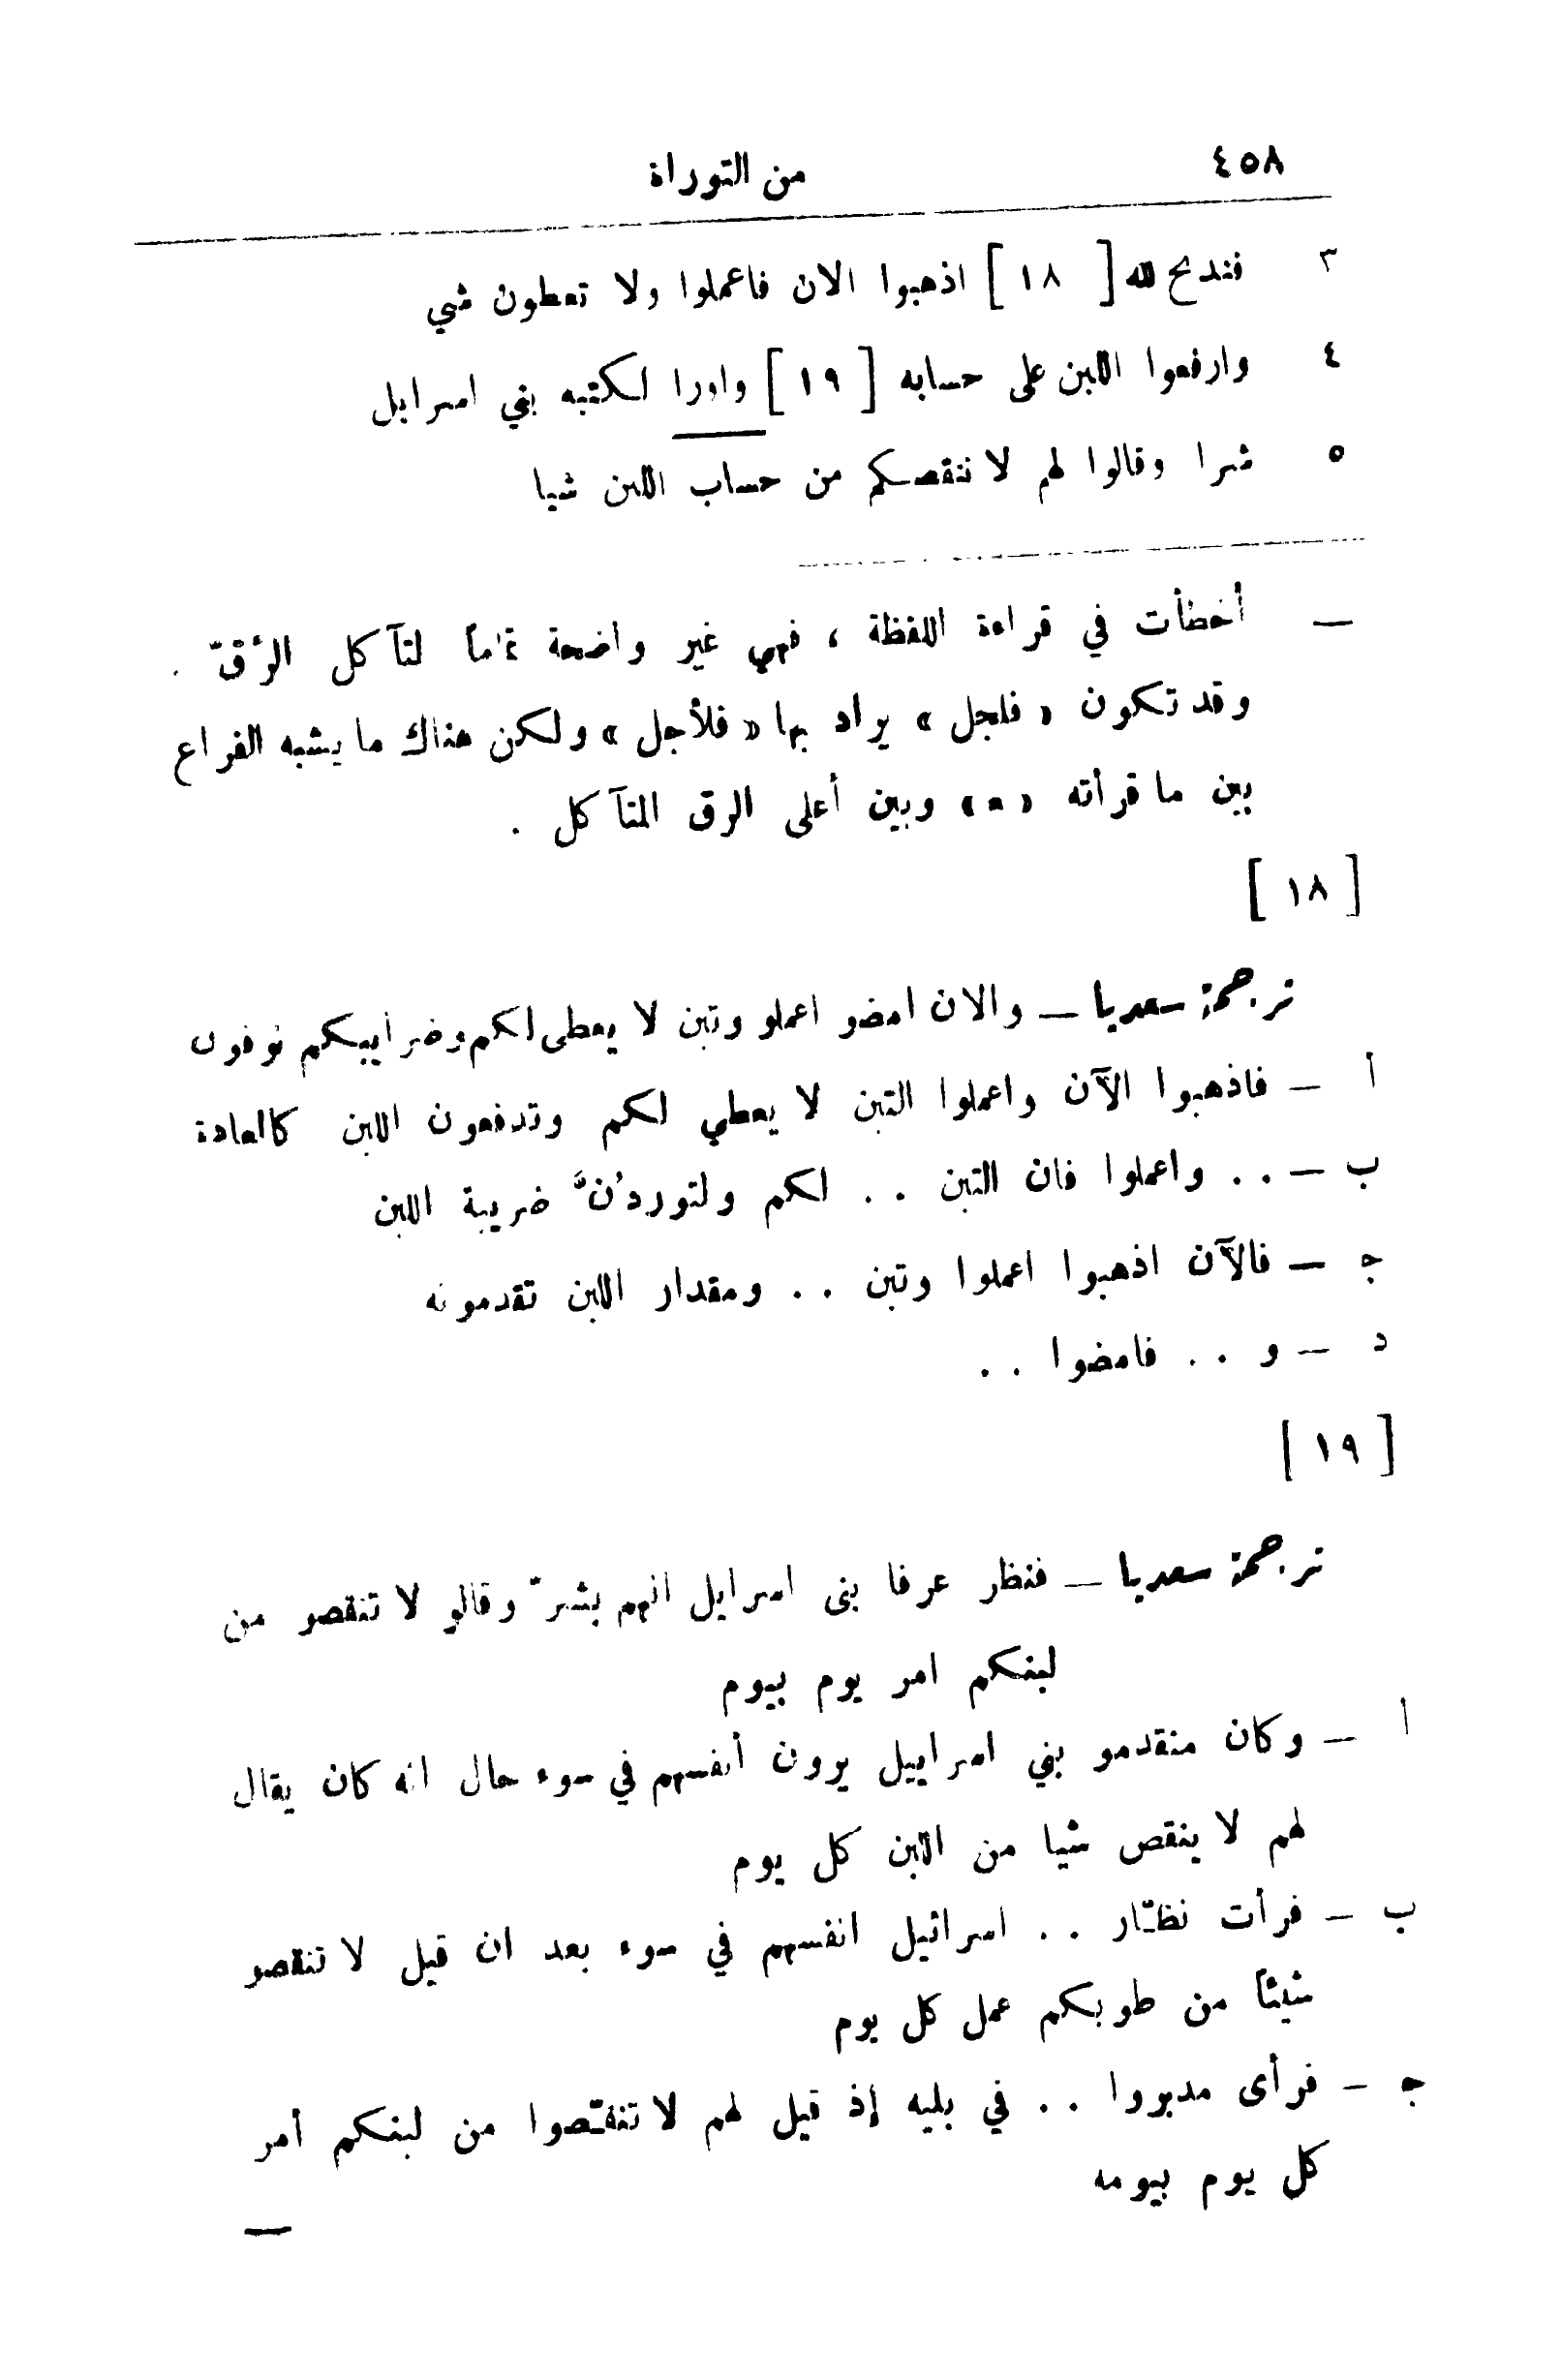 ٤٥٨ من التوراة
٣ فندبح لله [ ١٨ ] اذهبوا الان فاعملوا ولا تعطون شي
٤ وارفعوا اللبن على حسابه [ ١٩ ] واورا لكتبه بني اسرايل
٥ شرا وقالوا لهم لا ننقصكم من حساب اللبن شيا
— أخطأت في قراءة اللفظة ، فهي غير واضحة تماماً لتآكل الرَّق .
وقد تكون « فلجل » يراد بها « فلأجل » ولكن هناك ما يشبه الفراغ
بين ما قرأته « » وبين أعلى الرق المتآكل .
[ ١٨ ]
ترجمة سعديا — والان امضو اعملو وتبن لا يعطى لكم وضراييبكم توفون
أ — فاذهبوا الآن واعملوا التبن لا يعطي لكم وتدفعون اللبن كالعادة
ب — . . واعملوا فان التبن . . لكم ولتوردُنَّ ضريبة اللبن
ج — فالآن اذهبوا اعملوا وتبن . . ومقدار اللبن تقدمونه
د — و . . فامضوا . .
[ ١٩ ]
ترجمة سعديا — فنظر عرفا بنى اسرايل انهم بشرّ وقالو لا تنقصو من
لبنكم امر يوم بيوم
أ — وكان متقدمو بني اسراييل يرون أنفسهم في سوء حال انه كان يقال
لهم لا ينقص شيا من اللبن كل يوم
ب — فرأت نظّار . . اسرائيل انفسهم في سوء بعد ان قيل لا تنقصو
شيئاً من طوبكم عمل كل يوم
ج — فرأى مدبروا . . في بليه إذ قيل لهم لا تنقّصوا من لبنكم أمر
كل يوم بيومه
—